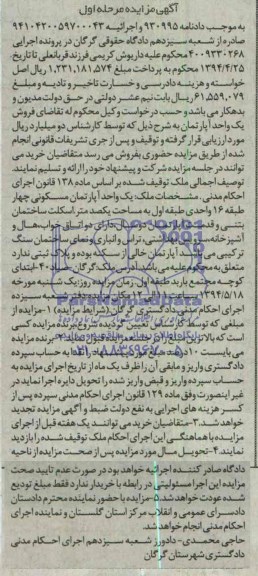 آگهی مزایده مرحله اول
به موجب دادنامه ۹۳۰۹۹۵ و اجرائیه ۹۴۱۰۴۲۰۰۵۹۷۰۰۰۴۳
صادره از شعبه سیزدهم دادگاه حقوقی گرگان در پرونده اجرایی
۴۰۰۹۳۳۰۲۶۸ محکوم علیه داریوش کریمی فرزند قربانعلی تا تاریخ
۱۳۹۴/۴/۲۵ محکوم به پرداخت مبلغ ۱,۲۳۱,۱۸۱,۵۷۴ ریال اصل
خواسته و هزینه دادرسی و خسارت تاخیر و تادیه و مبلغ
۶۱,۵۵۹,۰۷۹ ریال بابت نیم عشر دولتی در حق دولت مدیون و
بدهکار می باشد و حسب درخواست وکیل محکوم له تقاضای فروش
یک واحد آپارتمان به شرح ذیل که توسط کارشناس دو میلیارد ریال
مورد ارزیابی قرار گرفته و توقیف و پس از جری تشریفات قانونی انجام
شده از طریق مزایده حضوری بفروش می رسد متقاضیان خرید می
توانند در جلسه مزایده شرکت و پیشنهاد خود را ارائه و تسلیم نمایند
توصیف اجمالی ملک توقیف شده بر اساس ماده ۱۳۸ قانون اجرای
احکام مدنی. مشخصات ملک: یک واحد آپارتمان مسکونی چهار
طبقه ۱۶ واحدی طبقه اول به مساحت یکصد متر اسکلت ساختمان
بتنی و قدمت دارای دو اتاق خواب هال و
آشپزخانه تراس و انباری نمای ساختمان سنگ
ترکیبی می آپارتمان خالی از سکنه بوده و پلاک ثبتی ندارد
متعلق به محکوم علیه می باشد آدرس ملک گرگان ۴۰ ابتدای
کوچه مجتمع باربد طبقه اول زمان مزایده روز یک شنبه مورخه
۱۳۹۴/۵/۱۸ دفتر شعبه سیزده
اجرای احکام مدنی دادگستری گرگان (شرایط مزایده) ۱- مزایده از
مبلغی که توسط کارشناس تعیین گردیده شروع برنده مزایده کسی
است که بالاترین برنده مزایده
می بایست ۱۰ درصد را به حساب سپرده
دادگستری واریز و مابقی آن را ظرف یک ماه از تاریخ اجرای مزایده به
حساب سپرده واریز و قبض واریز شده را تحویل دایره اجرا نماید در
غیر اینصورت وفق ماده ۱۲۹ قانون اجرای احکام مدنی سپرده پس از
کسر هزینه های اجرایی به نفع دولت ضبط و آگهی مزایده تجدید
خواهد شد. ۳- متقاضیان خرید می توانند یک هفته قبل از اجرای
مزایده با هماهنگی این اجرای احکام ملک توقیف شده را بازدید
نمایند. ۴- تحویل مال مورد مزایده پس از صحت مزایده از ناحیه
دادگاه صادر کننده اجرائیه خواهد بود در صورت عدم تایید صحت
مزایده این اجرا مسئولیتی در رابطه با خریدار ندارد فقط مبلغ تودیع
شده عودت خواهد شد. ۵- مزایده با حضور نماینده محترم دادستان
دادسرای عمومی و انقلاب مرکز استان گلستان و نماینده اجرای
احکام مدنی انجام خواهد شد.
حاجی محمدی - دادورز شعبه سیزدهم اجرای احکام مدنی
دادگستری شهرستان گرگان